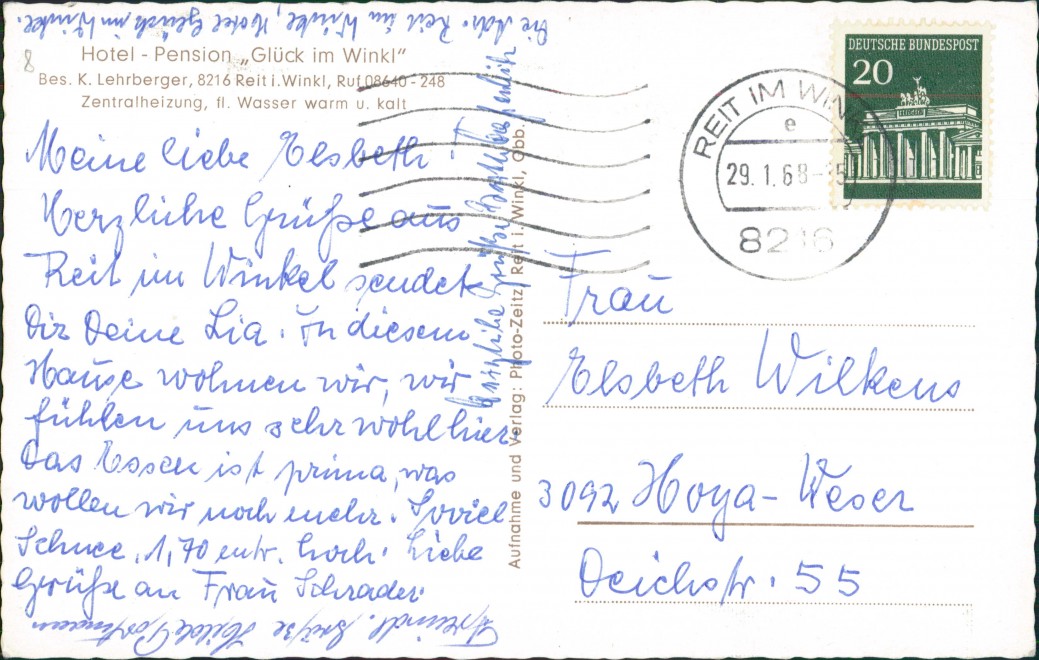 Die Adr. Reit im Winkl, Hotel Glück im Winkl.
8
Hotel - Pension „Glück im Winkl"
Bes. K. Lehrberger, 8216 Reit i. Winkl, Ruf 08640 - 248
Zentralheizung, fl. Wasser warm u. kalt
Meine liebe Elsbeth!
Herzliche Grüße aus
Reit im Winkel sendet
Dir Deine Lia. In diesem
Hause wohnen wir, wir
fühlen uns sehr wohl hier.
Das Essen ist prima, was
wollen wir noch mehr. Soviel
Schnee, 1,70 mtr. hoch. Liebe
Grüße an Frau Schrader.
Freundl. Grüße Hilde
Herzliche Grüße
Aufnahme und Verlag: Photo-Zeitz, Reit i. Winkl, Obb.
DEUTSCHE BUNDESPOST
20
REIT IM WIN
e
29.1.68-15
8216
Frau
Elsbeth Wilkens
3092 Hoya-Weser
Deichstr. 55